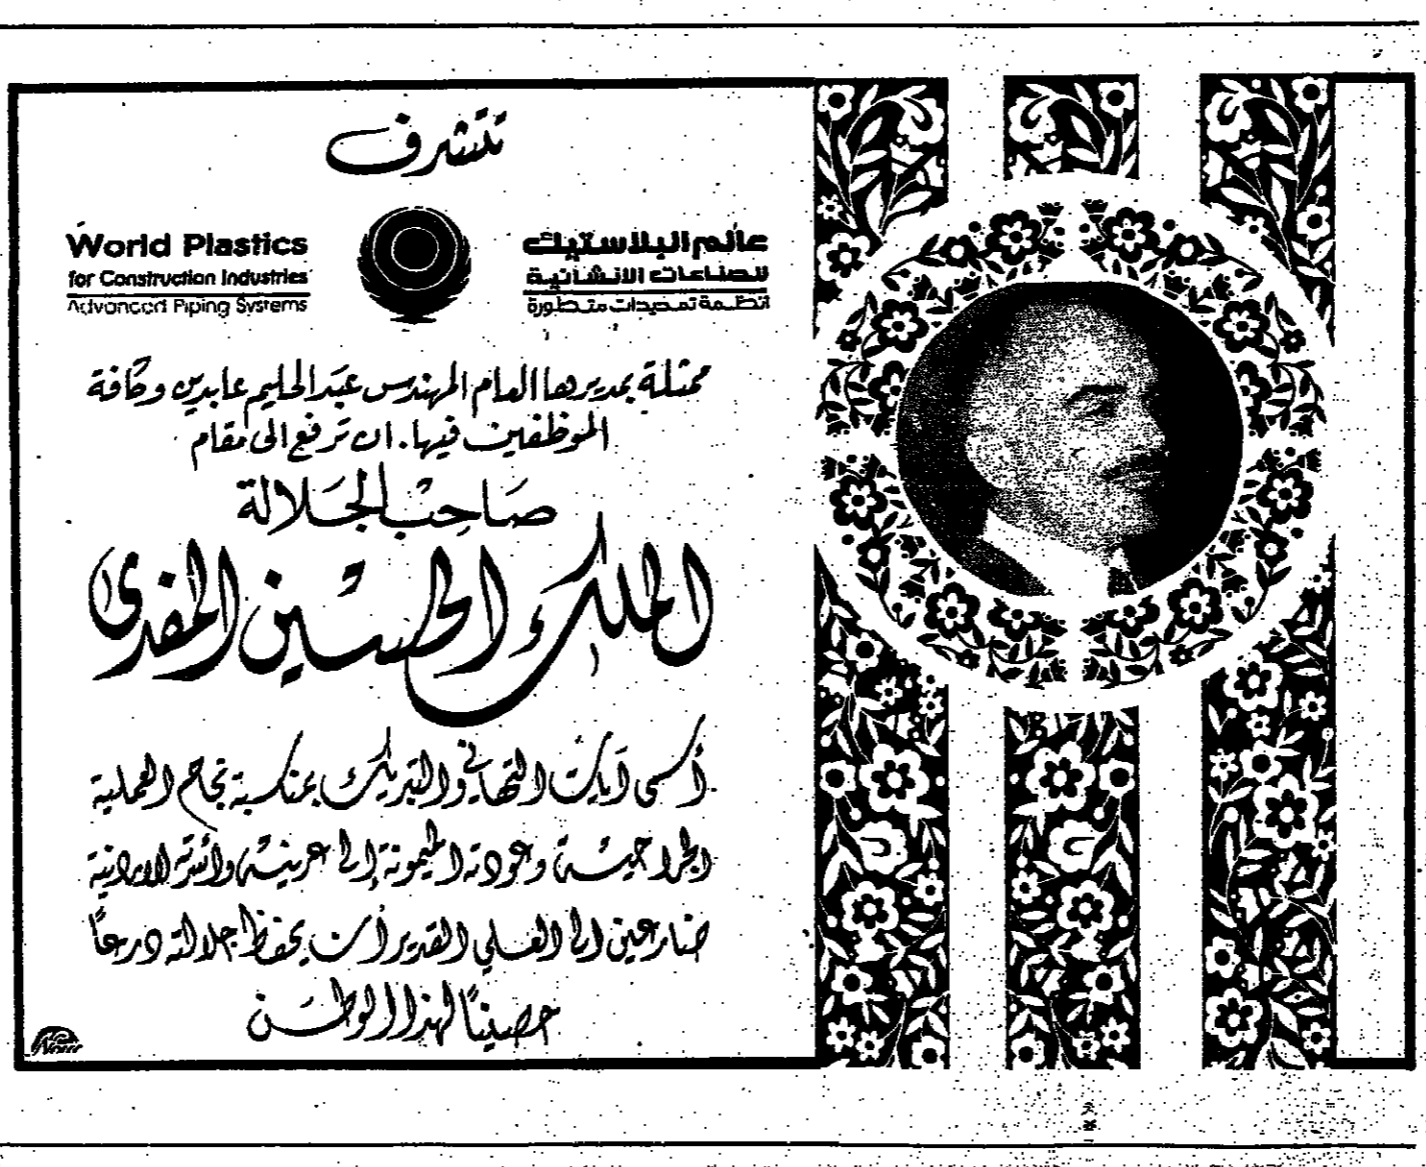 تتشرف
عالم البلاستيك
للصناعات الانشائية
انظمة تمديدات متطورة
World Plastics
for Construction Industries
Advanced Piping Systems
ممثلة بمديرها العام المهندس عبد الحليم عابدين وكافة
الموظفين فيها. ان ترفع الى مقام
صاحب الجلالة
الملك الحسين المفدى
أسمى آيات التهاني والتبريك بمناسبة نجاح العملية
الجراحية وعودته الميمونة إلى عرينه وأسرته الاردنية
ضارعين الى العلي القدير أن يحفظ جلالته درعاً
حصيناً لهذا الوطن